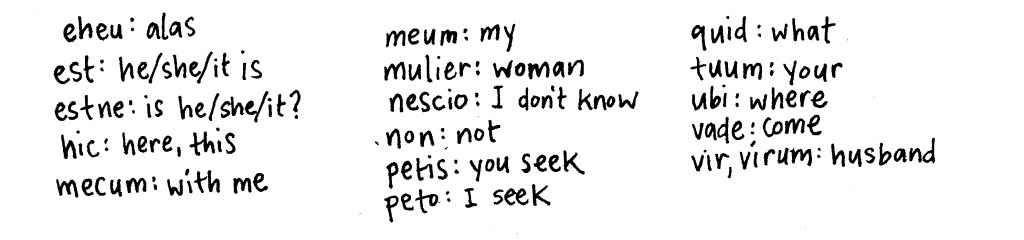 eheu: alas
est: he/she/it is
estne: is he/she/it?
hic: here, this
mecum: with me
meum: my
mulier: woman
nescio: I don't know
non: not
petis: you seek
peto: I seek
quid: what
tuum: your
ubi: where
vade: come
vir, virum: husband